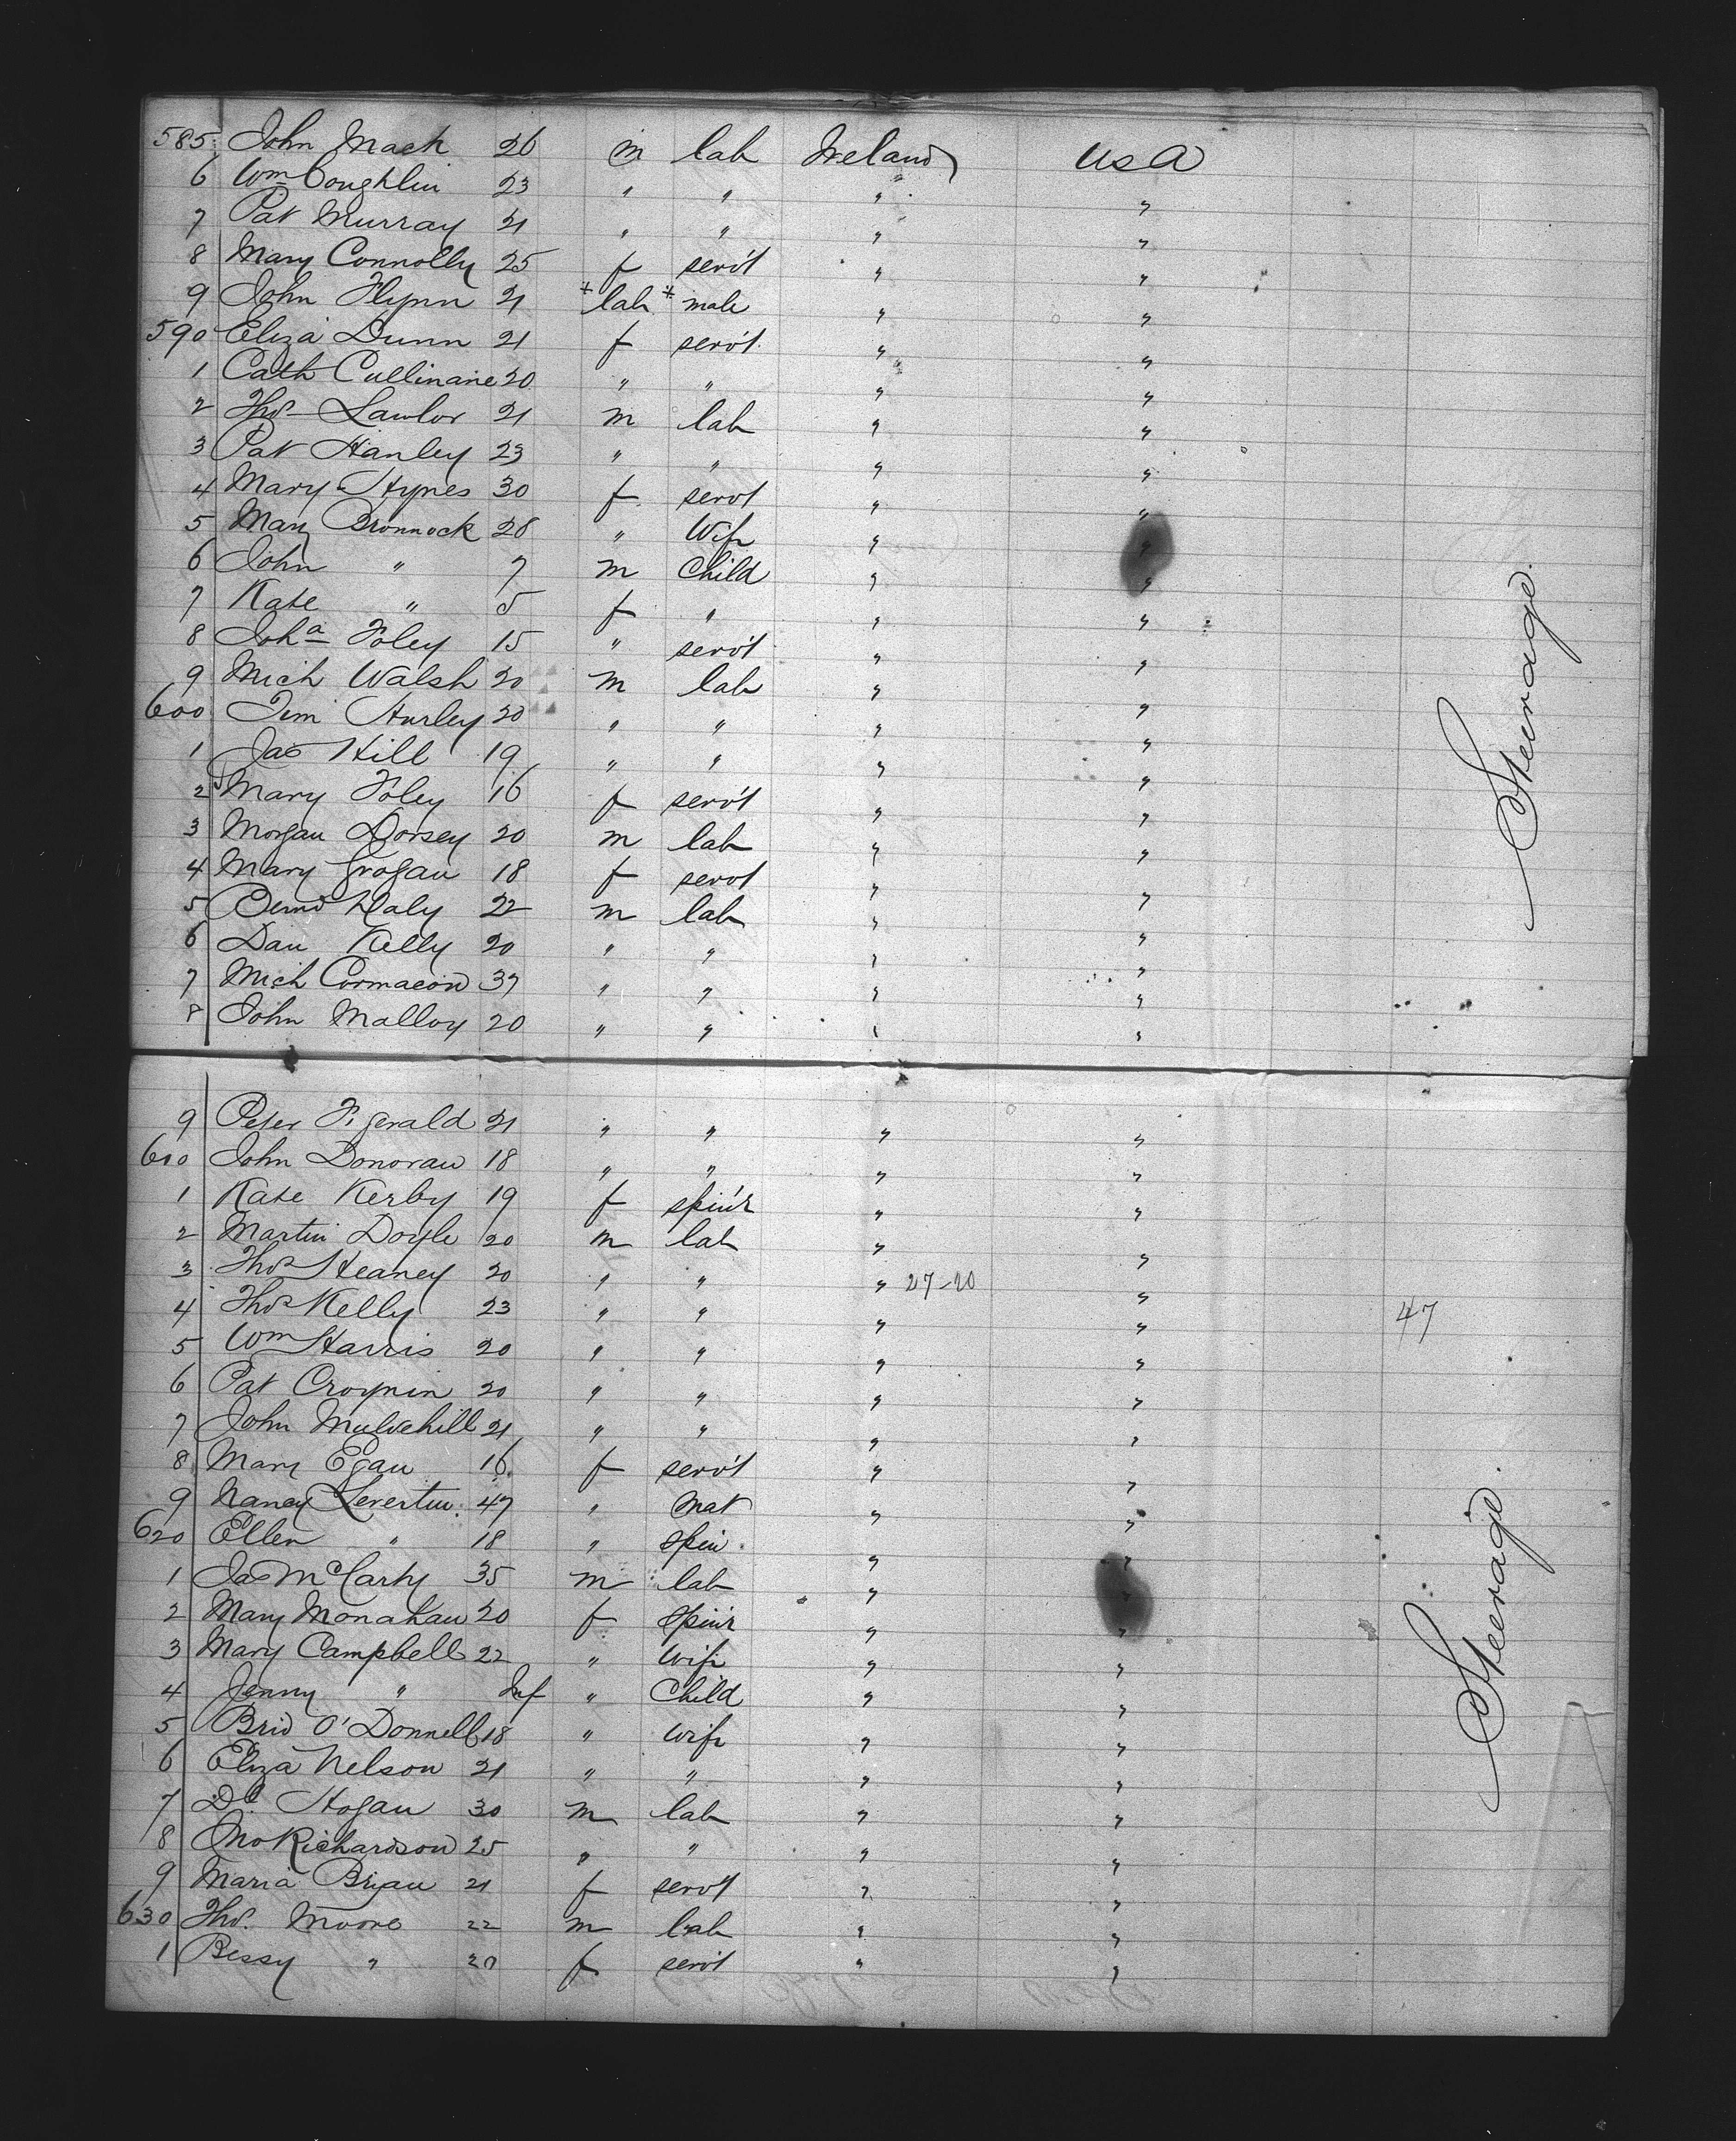 585 John Mack 26 m lab Ireland USA
6 Wm Coughlin 23 " " " "
7 Pat Murray 21 " " " "
8 Mary Connolly 25 f serv't " "
9 John Flynn 21 * lab * male " "
590 Eliza Dunn 21 f serv't " "
1 Cath Cullinane 20 " " " "
2 Thos Lawlor 21 m lab " "
3 Pat Hanley 23 " " " "
4 Mary Hynes 30 f servt " "
5 Mary Bronnock 28 " Wife " "
6 John " 7 m Child " "
7 Kate " 5 f " " "
8 Joha Foley 15 " serv't " "
9 Mich Walsh 20 m lab " "
600 Tim Hurley 20 " " " "
1 Jas Hill 19 " " " "
2 Mary Foley 16 f serv't " "
3 Morgan Dorsey 20 m lab " "
4 Mary Grogan 18 f servt " "
5 Bernd Daly 22 m lab " "
6 Dan Kelly 20 " " " "
7 Mich 37 " " " "
8 John Malloy 20 " " " "
Steerage.
9 Peter F.gerald 21 " " " "
610 John Donovan 18 " " " "
1 Kate Kerby 19 f spin'r " "
2 Martin Doyle 20 m lab " "
3 Thos Heaney 20 " " " 27-20 "
4 Thos Kelly 23 " " " " 47
5 Wm Harris 20 " " " "
6 Pat 20 " " " "
7 John Mulvehill 21 " " " "
8 Mary Egan 16 f serv't " "
9 Nancy Levertin 47 " Mat " "
620 Ellen " 18 " Spin " "
1 Jas McCarty 35 m lab " "
2 Mary Monahan 20 f Spin'r " "
3 Mary Campbell 22 " Wife " "
4 Jenny " Inf " Child " "
5 Brid O'Donnell 18 " Wife " "
6 Eliza Nelson 21 " " " "
7 Dl Hogan 30 m lab " "
8 Jno Richardson 25 " " " "
9 Maria Bryan 21 f servt " "
630 Thos. Moore 22 m lab " "
1 Bessy " 20 f servt " "
Steerage.